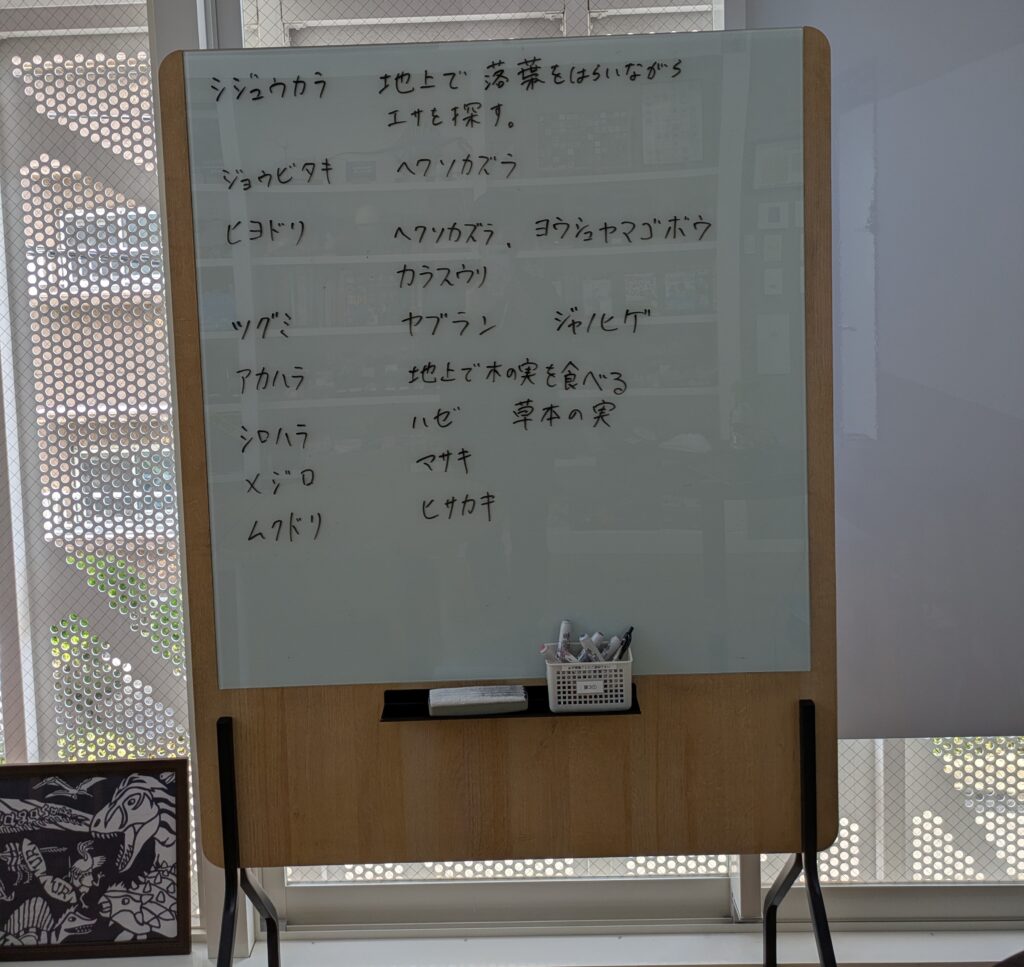 シジュウカラ 地上で 落葉をはらいながら
エサを探す。
ジョウビタキ ヘクソカズラ
ヒヨドリ ヘクソカズラ、ヨウシュヤマゴボウ
カラスウリ
ツグミ ヤブラン ジャノヒゲ
アカハラ 地上で木の実を食べる
シロハラ ハゼ 草本の実
メジロ マサキ
ムクドリ ヒサカキ